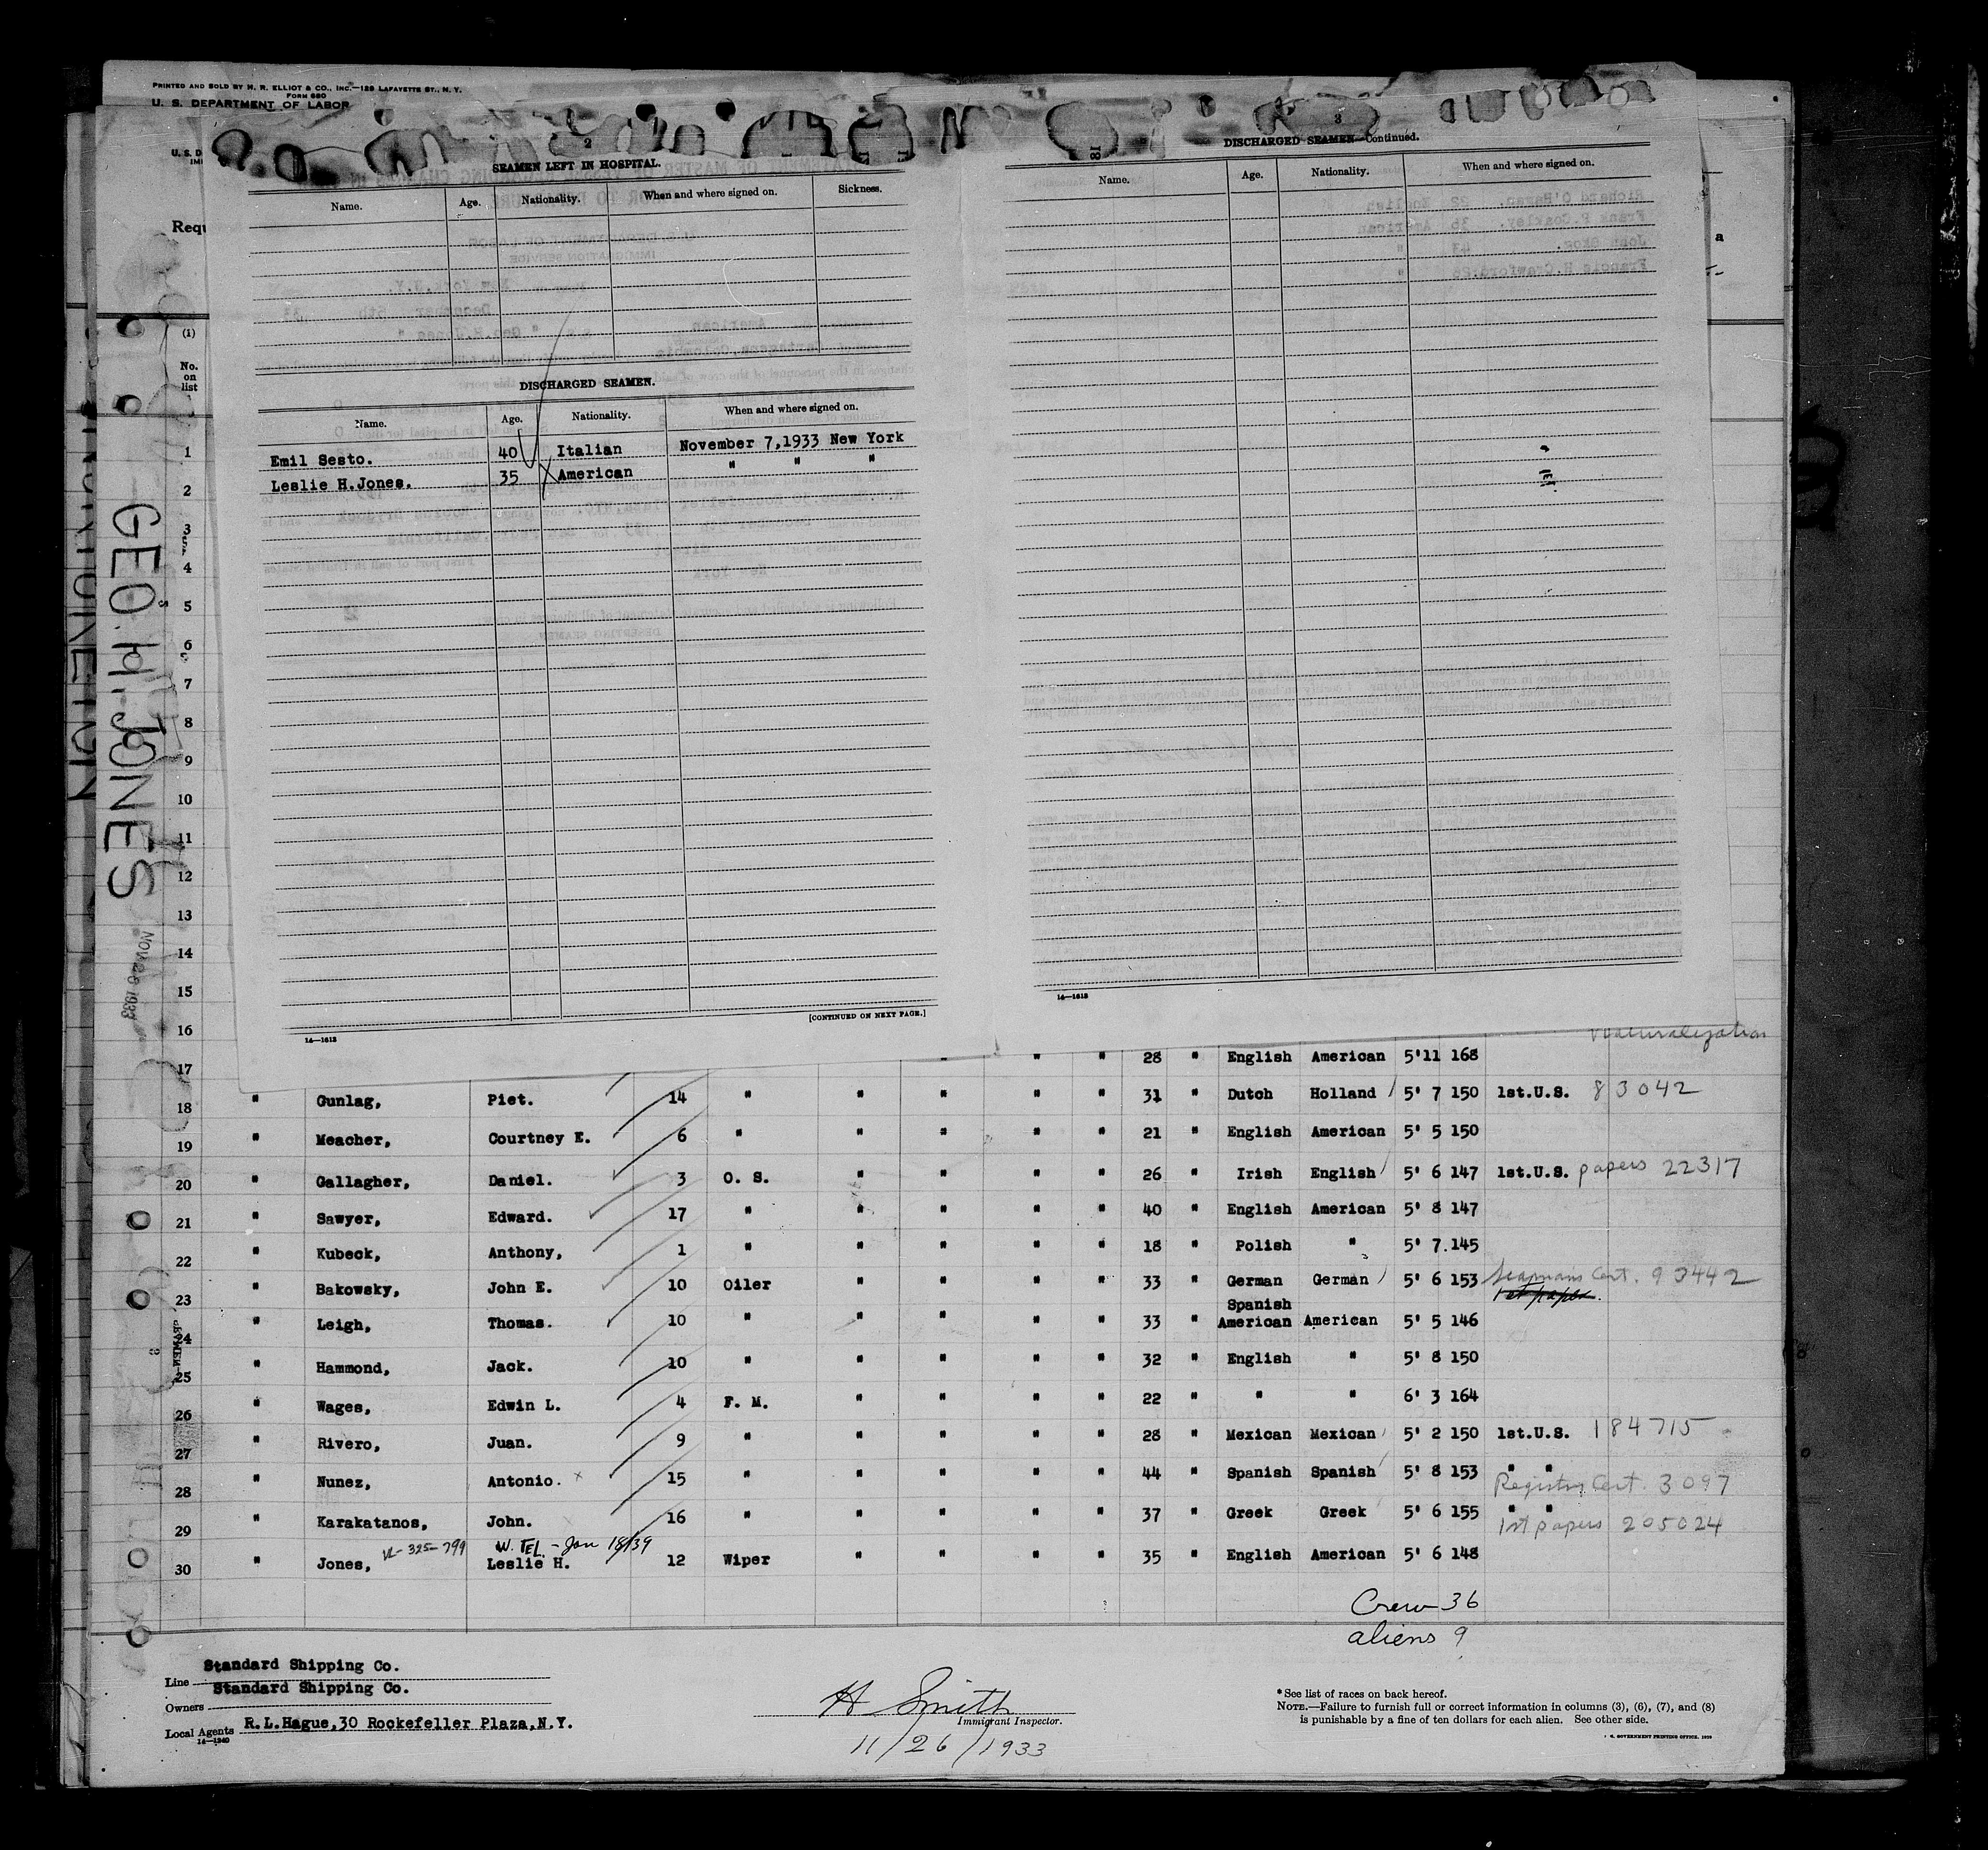 PRINTED AND SOLD BY H. R. ELLIOT & CO., INC.—129 LAFAYETTE ST., N. Y.
FORM 680
U. S. DEPARTMENT OF LABOR
U. S. D
IMI
Requ
a
GEO. H. JONES
NOV 26 1933
(1)
No.
on
list
2
SEAMEN LEFT IN HOSPITAL.
Name. Age. Nationality. When and where signed on. Sickness.
DISCHARGED SEAMEN.
Name. Age. Nationality. When and where signed on.
Emil Sesto. 40 Italian November 7,1933 New York
Leslie H.Jones. 35 American " " "
[CONTINUED ON NEXT PAGE.]
14—1613
3
DISCHARGED SEAMEN—Continued.
Name. Age. Nationality. When and where signed on.
14—1613
1
2
3
4
5
6
7
8
9
10
11
12
13
14
15
16
naturalization
17 " " " 28 " English American 5'11 168
18 " Gunlag, Piet. 14 " " " " " 31 " Dutch Holland 5' 7 150 1st.U.S. 83042
19 " Meacher, Courtney E. 6 " " " " " 21 " English American 5' 5 150
20 " Gallagher, Daniel. 3 O. S. " " " " 26 " Irish English 5' 6 147 1st.U.S. papers 22317
21 " Sawyer, Edward. 17 " " " " " 40 " English American 5' 8 147
22 " Kubeck, Anthony, 1 " " " " " 18 " Polish " 5' 7.145
23 " Bakowsky, John E. 10 Oiler " " " " 33 " German German 5' 6 153 Seamans Cert. 93442
1st papers.
24 " Leigh, Thomas. 10 " " " " " 33 " Spanish American American 5' 5 146
25 " Hammond, Jack. 10 " " " " " 32 " English " 5' 8 150
26 " Wages, Edwin L. 4 F. M. " " " " 22 " " " 6' 3 164
27 " Rivero, Juan. 9 " " " " " 28 " Mexican Mexican 5' 2 150 1st.U.S. 184715
28 " Nunez, Antonio. x 15 " " " " " 44 " Spanish Spanish 5' 8 153 " "
Registry Cert. 3097
29 " Karakatanos, John. 16 " " " " " 37 " Greek Greek 5' 6 155 " "
1st papers 205024
VL-325-799 W. TEL. - Jan 18/39
30 " Jones, Leslie H. 12 Wiper " " " " 35 " English American 5' 6 148
Crew 36
aliens 9
Line Standard Shipping Co.
Owners Standard Shipping Co.
Local Agents R.L.Hague,30 Rockefeller Plaza,N.Y.
14—1240
H Smith
Immigrant Inspector.
11/26/1933
* See list of races on back hereof.
NOTE.—Failure to furnish full or correct information in columns (3), (6), (7), and (8)
is punishable by a fine of ten dollars for each alien. See other side.